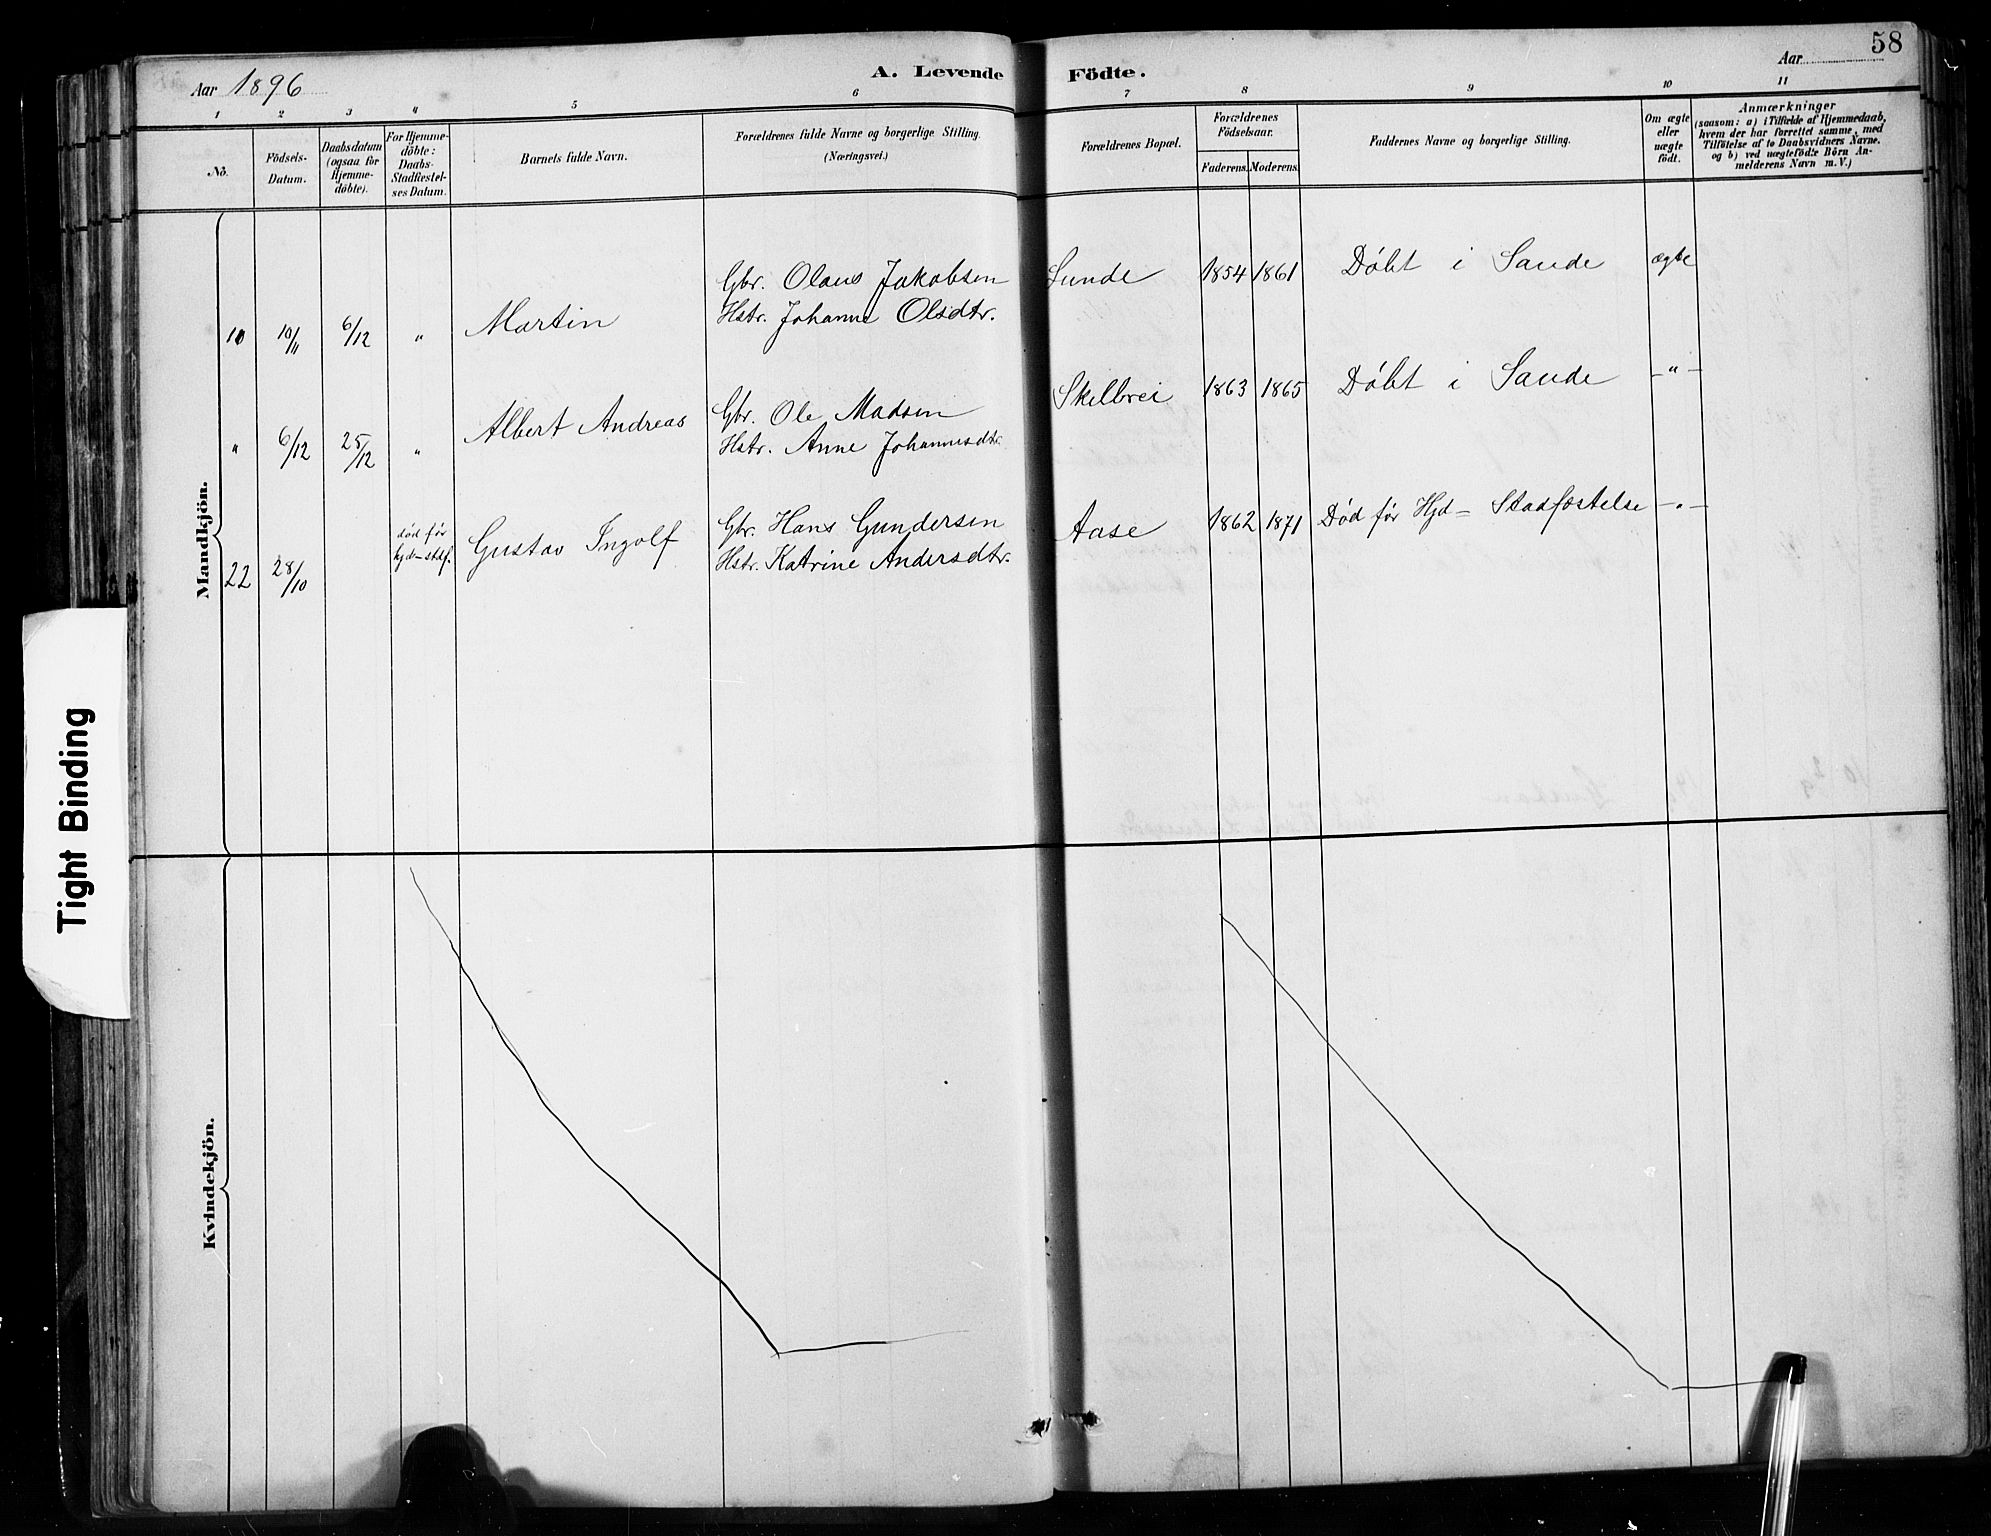 58
Aar 1896
A. Levende Födte.
Aar
1 2 3 4 5 6 7 8 9 10 11
No.
Födsels-
Datum.
Daabsdatum
(ogsaa for
Hjemme-
döbte).
For Hjemme-
döbte:
Daabs-
Stadfæstel-
ses Datum.
Barnets fulde Navn.
Forældrenes fulde Navne og borgerlige Stilling.
(Næringsvei.)
Forældrenes Bopæl.
Forældrenes
Födselsaar.
Faderens. Moderens.
Faddernes Navne og borgerlige Stilling.
Om ægte
eller
uægte
födt.
Anmærkninger
(saasom: a) i Tilfælde af Hjemmedaab,
hvem der har forrettet samme, med
Tilföielse af to Daabsvidners Navne.
og b) ved uægtefödte Börn An-
melderens Navn m.V.)
Mandkjön.
Gbr. Olaus Jakobsen Lunde 1854 1861 Døbt i Sande ægte
10 10/11 6/12 " Martin Hstr. Johanne Olsdtr.
Albert Andreas Gbr. Ole Madsen Skilbrei 1863 1865 Døbt i Sande - " -
" 6/12 25/12 " Hstr. Anne Johannesdtr.
død før Gustav Ingolf Gbr. Hans Gundersen Aase 1862 1871 Død før Hjd - Stadfæstelse - " -
22 28/10 hjd-staf. Hstr. Katrine Andersdtr.
Tight Binding
Kvindekjön.